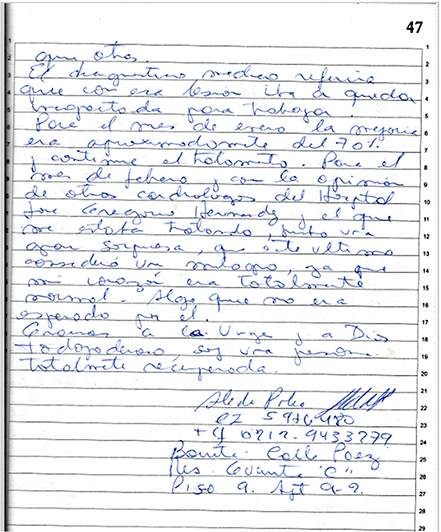 47
que otros.
El diagnostico medico referia
que con esa lesion iba a quedar
incapacitada para trabajar.
Para el mes de enero la mejoria
era aproximadamente del 70%
y continue el tratamiento. Para el
mes de febrero y con la opinion
de otros cardiologos del Hospital
Jose Gregorio Hernandez y el que
me estaba tratando, hubo una
gran sorpresa, que este ultimo
considero un milagro, ya que
mi corazon era totalmente
normal. Algo que no era
esperado por el.
Gracias a la Virgen y a Dios
todopoderoso, soy una persona
totalmente recuperada.
0212-9433279
Calle Paez
Res. Levante "C"
Piso 9. Apt 9-2.